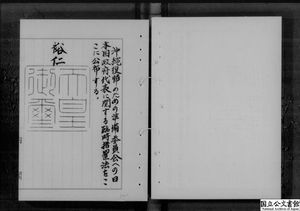 沖縄復帰のための準備委員会への日
本国政府代表に関する臨時措置法をこ
こに公布する。
裕仁
天皇
御璽
国立公文書館
National Archives of Japan